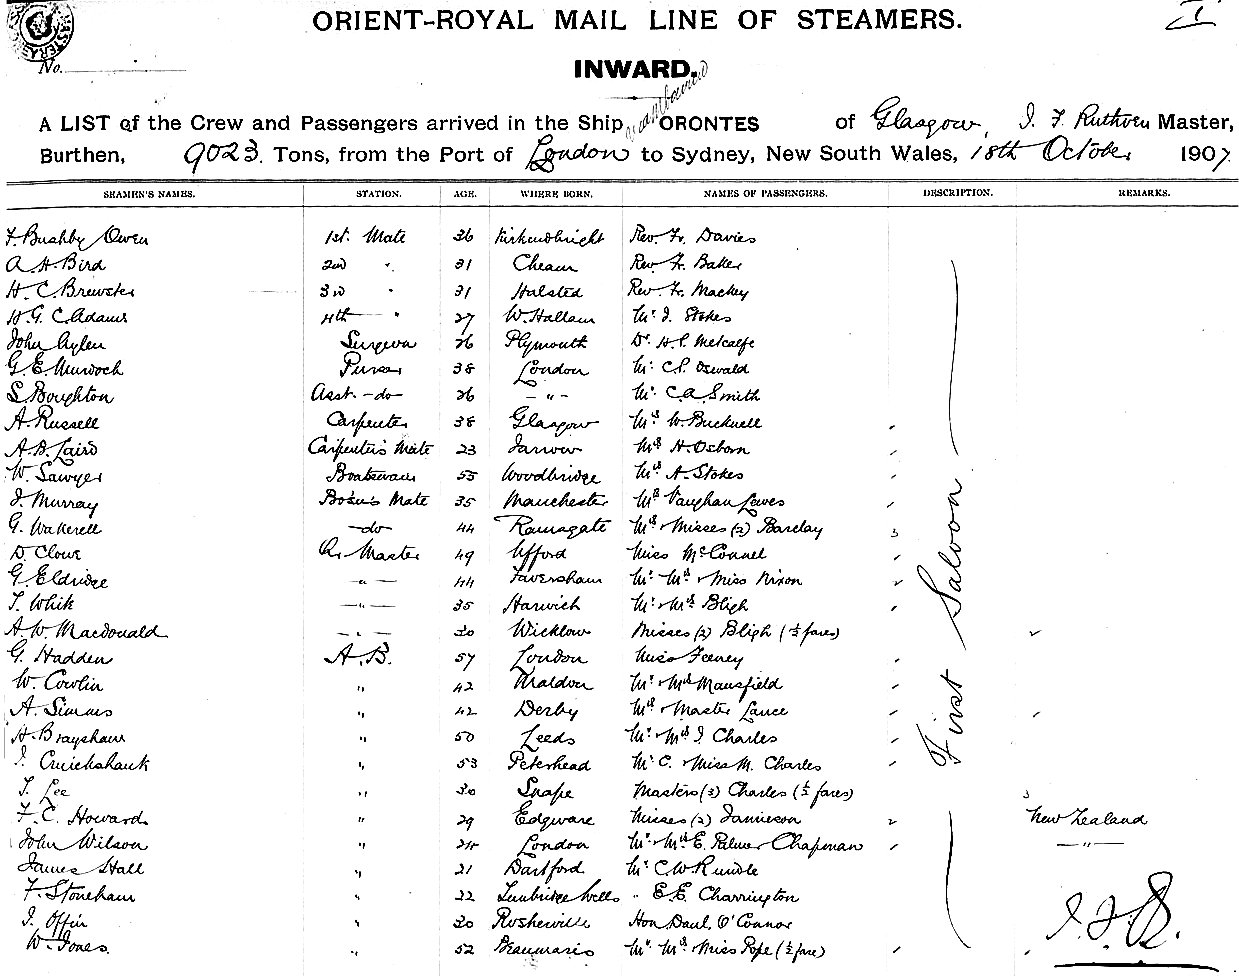 ORIENT-ROYAL MAIL LINE OF STEAMERS.
No.
INWARD.
A LIST of the Crew and Passengers arrived in the Ship ORONTES of Glasgow, J. F. Ruthven Master,
Burthen, 9023 Tons, from the Port of London to Sydney, New South Wales, 18th October 1907.
SEAMEN'S NAMES. STATION. AGE. WHERE BORN. NAMES OF PASSENGERS. DESCRIPTION. REMARKS.
F. Bushby Owen 1st. Mate 36 Kirkcudbright Rev. Fr. Davies
A. H. Bird 2nd " 31 Cheam Rev. Fr. Baker
H. C. Brewster 3rd " 31 Halsted Rev. Fr. Mackey
H. G. C. Adams 4th " 27 W. Hallam Mr. J. Stokes
John Aylen Surgeon 26 Plymouth Dr. H. P. Metcalfe
G. E. Murdoch Purser 38 London Mr. C. P. Oswald
S. Boughton Asst. -do- 26 - " - Mr. C. A. Smith
A. Russell Carpenter 38 Glasgow Mrs W. Bucknell
A. B. Laird Carpenter's Mate 23 Jarrow Mrs H. Osborn
W. Sawyer Boatswain 55 Woodbridge Mrs A. Stokes
J. Murray Bosun's Mate 35 Manchester Mrs Vaughan Lewes
G. Wakerell -do- 44 Ramsgate Mrs & Misses (2) Barclay 3
D. Clowe Qr. Master 49 Ufford Miss McConnel
G. Eldridge - " - 44 Faversham Mr. Mrs & Miss Nixon
T. White - " - 35 Harwich Mr. & Mrs Bligh
A. W. Macdonald - " - 30 Wicklow Misses (2) Bligh (½ fares)
G. Hadden A.B. 57 London Miss Feeney
W. Cowlin " 42 Maldon Mr. & Mrs Mansfield
A. Simms " 42 Derby Mrs & Master Lance
H. Brayshaw " 50 Leeds Mr. & Mrs J. Charles
J. Cruickshank " 53 Peterhead Mr C. & Miss M. Charles
T. Lee " 30 Snape Masters (3) Charles (½ fares) 3
F. C. Howard " 29 Edgware Misses (2) Jamieson 2 New Zealand
John Wilson " London Mr. & Mrs E. Palmer Chapman - " -
James Hall " 21 Dartford Mr. C. W. Rundle
F. Stoneham " 22 Tunbridge Wells " E. E. Charrington
J. Offin " 30 Rosherville Hon Danl. O'Connor
W. Jones " 52 Beaumaris Mr. Mrs & Miss Pope (½ fare)
First Saloon